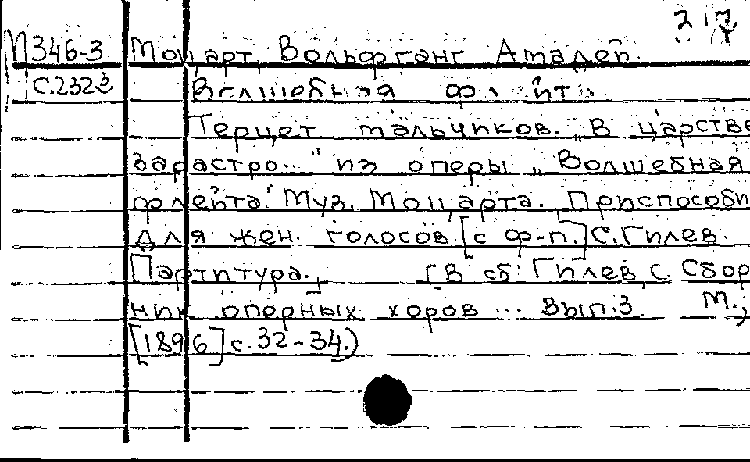 217
М346-3 Моцарт, Вольфганг Амадей.
С.2323 Волшебная флейта
Терцет мальчиков. „В царстве
Зарастро..." из оперы „Волшебная
флейта." Муз. Моцарта. Приспособил
для жен. голосов [с ф-п.] С. Гилев.
Партитура. (В сб: Гилев, С. Сбор
ник оперных хоров ... Вып.3. М.,
[1896] с.32-34.)